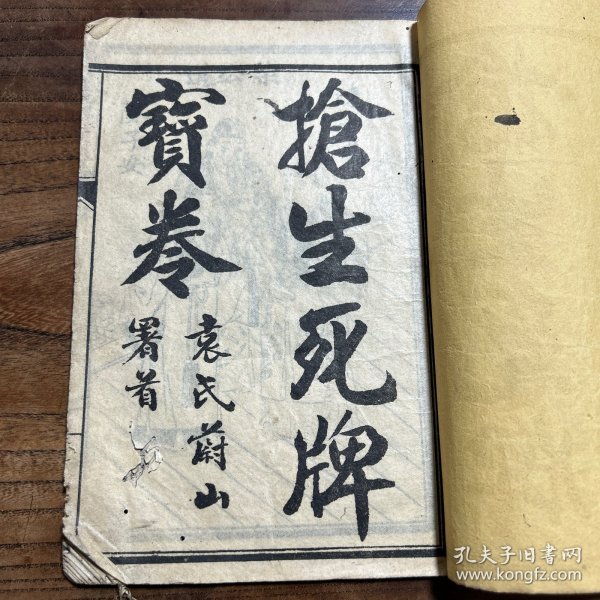 搶生死牌
寶卷
袁氏蔚山
署首
孔夫子旧书网
www.kongfz.com